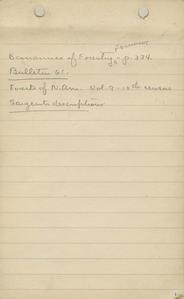 Fernow
Economics of Forestry - p. 334.
Bulletin 61.
Forests of N. Am. Vol. 9 - 10th census
Sargent's description